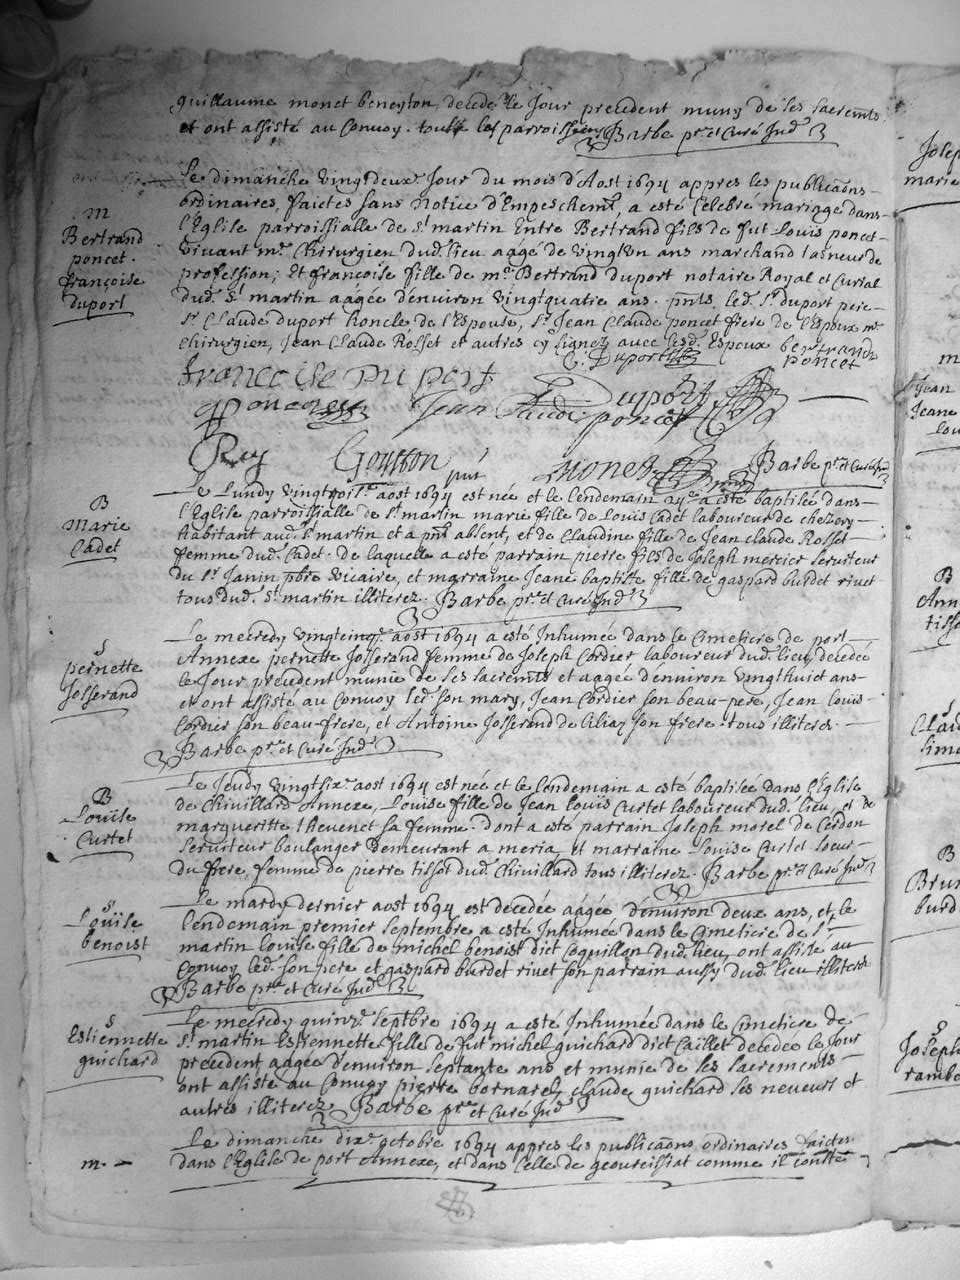 guillaume monet beneyton, decedé le Jour precedent muny de ses sacremts
et ont assisté au Convoy. touts les parroissiens Barbe ptre et Curé Indᵉ
m
Bertrand
poncet.
françoise
duport
Le dimanche vingtdeuxe Jour du mois d'Aost 1694 appres les publicaons
ordinaires, faictes sans notice d'Empeschemt, a esté Celebré mariage dans
l'Eglise parroissialle de St martin Entre Bertrand fils de fut Louis poncet
vivant me Chirurgien dud. lieu aagé de vingt ans marchand tasneur de
profession; Et françoise fille de me Bertrand duport notaire Royal et Curial
dud. St martin aagée d'environ vingtquatre ans. pnts led. Sr duport pere
Sr Claude duport honcle de l'Espouse, Sr Jean Claude poncet frere de l'Espoux me
Chirurgien, Jean Claude Rosset et autres cy signez avec lesd. Espoux bertrand
C. Duport poncet
francoise Du port Duport
Poncet Jean Claude poncet
Rey Goytton pnt monet Barbe ptre et Curé Indᵉ
B
Marie
Cadet
Le Lundy vingttroise aost 1694 est née et le lendemain a esté baptisée dans
l'Eglise parroissialle de St martin marie fille de Louis Cadet laboureur de chezery
habitant aud. St martin et a pnt absent, et de Claudine fille de Jean claude Rosset
femme dud. Cadet. de laquelle a esté parrain pierre fils de Joseph mercier serviteur
du Sr Janin pbre vicaire, et marraine Jeane baptiste fille de gaspard burdet rivet
tous dud. St martin illiterez. Barbe ptre et Curé Indᵉ
S
pernette
Josserand
Le mecredy vingtcinqe aost 1694 a esté Inhumée dans le Cimetiere de port
Annexe pernette Josserand femme de Joseph Cordier laboureur dud. lieu decedée
le Jour precedent munie de ses sacremts et aagée d'environ vingthuict ans
et ont assisté au Convoy led. son mary, Jean Cordier son beau-pere, Jean Louis
Cordier son beau-frere, et Antoine Josserand de Ciliaz son frere tous illiterez.
Barbe ptre et Curé Indᵉ
B
Louïse
Curtet
Le Jeudy vingtsixe aost 1694 est née et le lendemain a esté baptisée dans l'Eglise
de Chivillard Annexe, Louise fille de Jean Louis Curtet laboureur dud. lieu, et de
margueritte thevenet sa femme. dont a esté parrain Joseph morel de Cerdon
serviteur boulanger demeurant a meria et marraine Louise Curtet soeur
du frere, femme de pierre tissot dud. Chivillard tous illiterez. Barbe ptre et Curé Indᵉ
S
Louïse
benoist
Le mardy dernier aost 1694 est decedée aagée d'environ deux ans, et le
lendemain premier septembre a esté Inhumée dans le Cimetiere de St
martin louise fille de michel benoist dict Coquillon dud. lieu, ont assisté au
Convoy led. son pere et gaspard burdet rivet son parrain aussy dud. lieu illiterez
Barbe ptre et Curé Indᵉ
S
Estiennette
guichard
Le mecredy quinze septbre 1694 a esté Inhumée dans le Cimetiere de
St martin Estiennette fille de fut michel guichard dict Caillet decedée le Jour
precedent aagée d'environ septante ans et munie de ses sacrements
ont assisté au Convoy pierre bornarel, claude guichard ses neveurs et
autres illiterez Barbe ptre et Curé Indᵉ
m.
Le dimanche dixe octobre 1694 appres les publicaons ordinaires faictes
dans l'Eglise de port Annexe, et dans Celle de geovreissiat comme il conste
Joseph
marie
m
Jean
Jeane
B
Ann
tisso
S
B
Brun
burd
S
Joseph